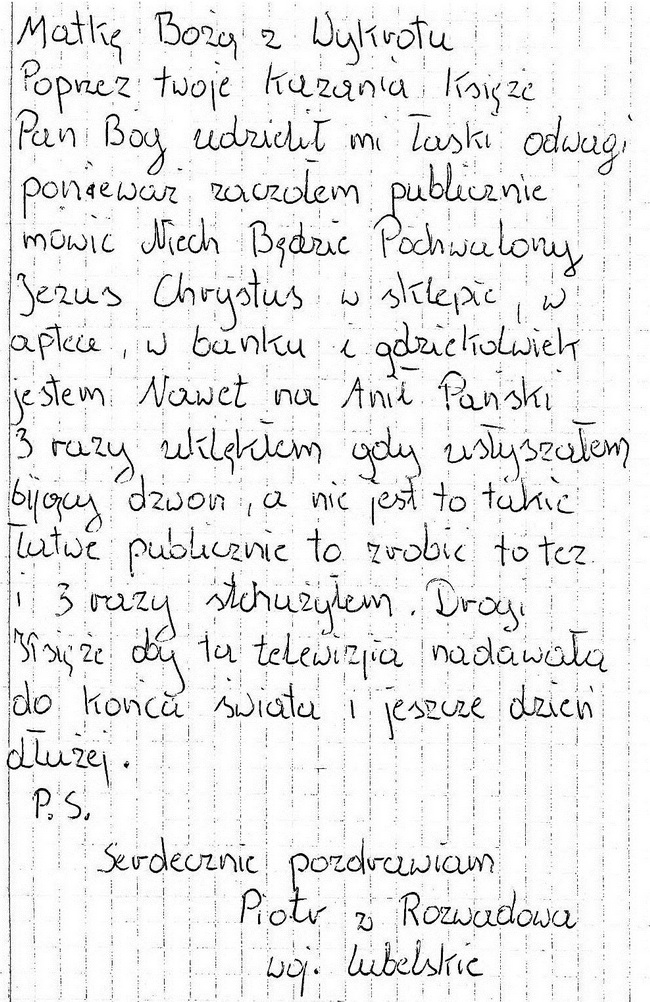 Matkę Bożą z Wykrotu
Poprzez twoje kazania Księże
Pan Bóg udzielił mi łaski odwagi
ponieważ zaczołem publicznie
mówić Niech Będzie Pochwalony
Jezus Chrystus w sklepie, w
aptece, w banku i gdziekolwiek
jestem Nawet na Anił Pański
3 razy uklękłem gdy usłyszałem
bijący dzwon, a nie jest to takie
łatwe publicznie to zrobić to też
i 3 razy stchużyłem. Drogi
Księże oby ta telewizjia nadawała
do końca świata i jeszcze dzień
dłużej.
P.S.
Serdecznie pozdrawiam
Piotr z Rozwadowa
woj. lubelskie